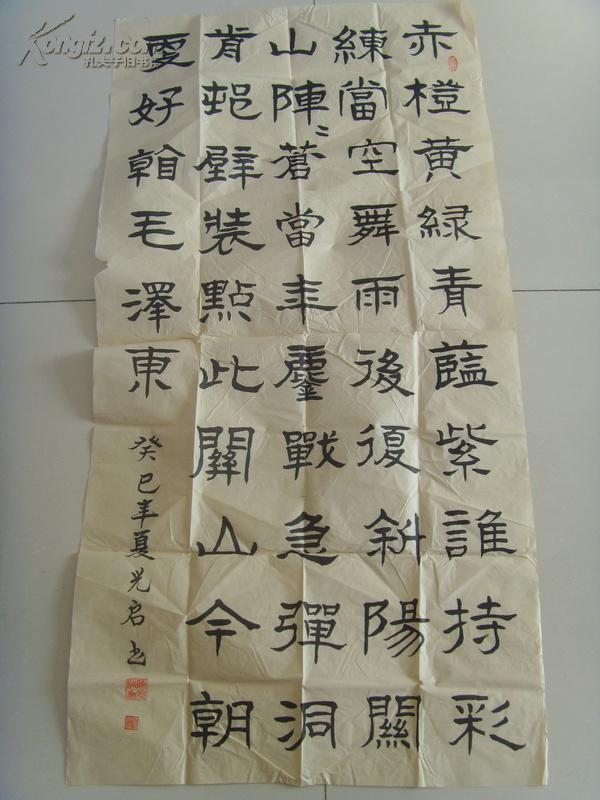 赤橙黄緑青藍紫誰持彩
練當空舞雨後復斜陽關
山陣〻蒼當年鏖戰急彈洞
前邨壁裝點此關山今朝
更好看毛澤東
癸巳年夏光启书
孔夫子旧书网